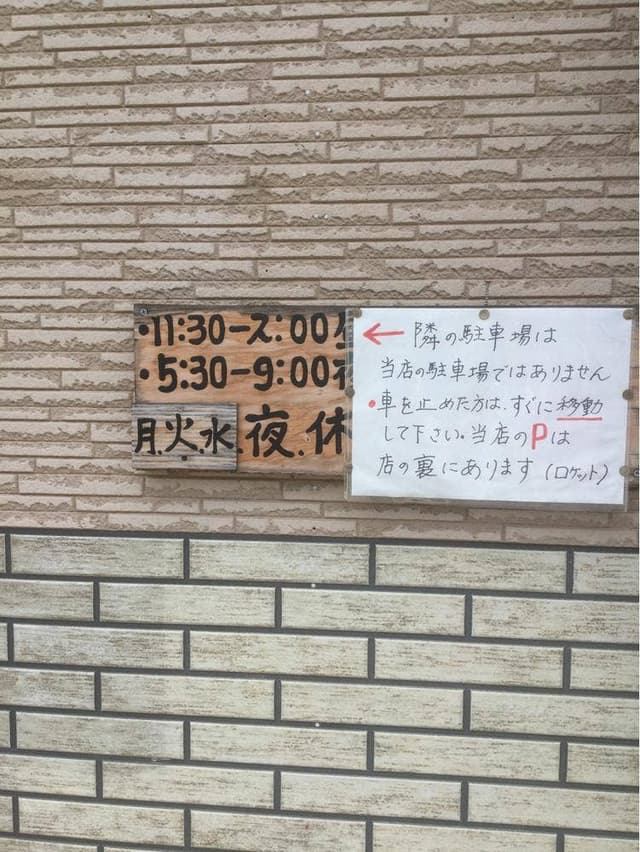 ・11:30ー2:00
・5:30ー9:00
月.火.水.夜.休
← 隣の駐車場は
当店の駐車場ではありません
・車を止めた方は、すぐに移動
して下さい。当店のPは
店の裏にあります(ロケット)